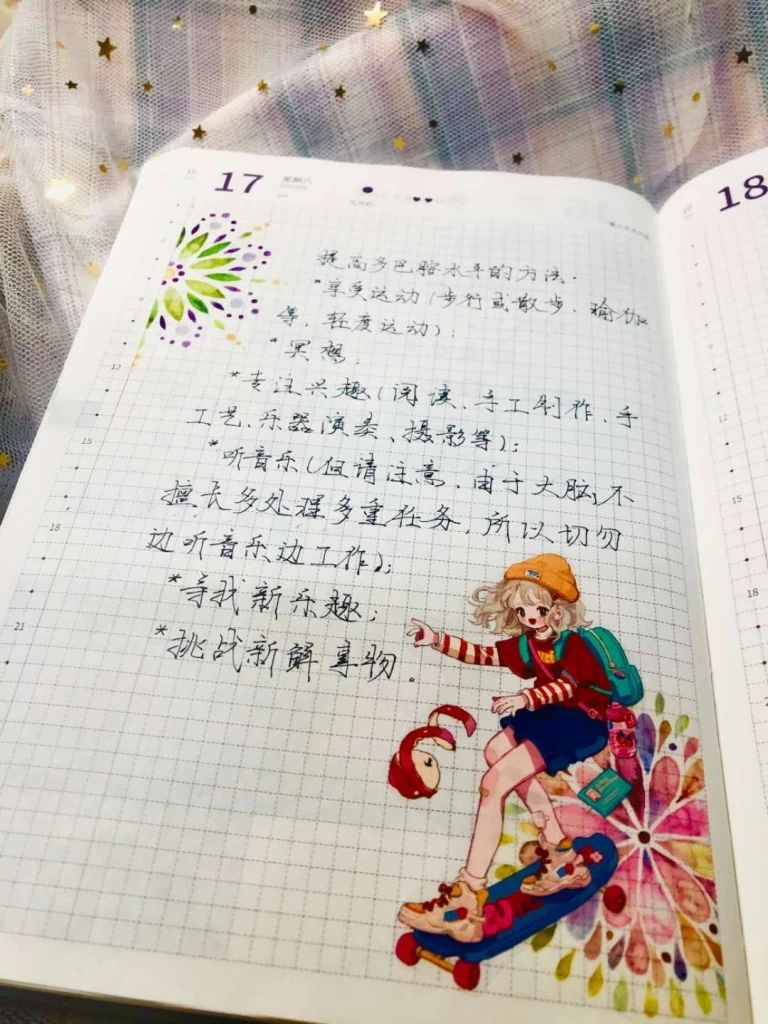 17
星期六
18
提高多巴胺水平的方法.
*享受运动(步行或散步、瑜伽
等,轻度运动);
*冥想;
*专注兴趣(阅读、手工制作、手
工艺、乐器演奏、摄影等);
*听音乐(但请注意,由于大脑不
擅长多处理多重任务,所以切勿
边听音乐边工作);
*寻找新乐趣;
*挑战新解事物。
12
15
18
21
15
18